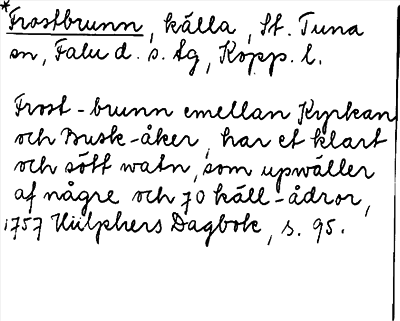 *Frostbrunn, källa, St. Tuna
sn, Falu d. s. tg, Kopp. l.
Frost-brunn emellan Kyrkan
och Busk-åker, har et klart
och sött watn, som upwäller
af någre och 70 käll-ådror,
1757 Hülphers Dagbok, s. 95.